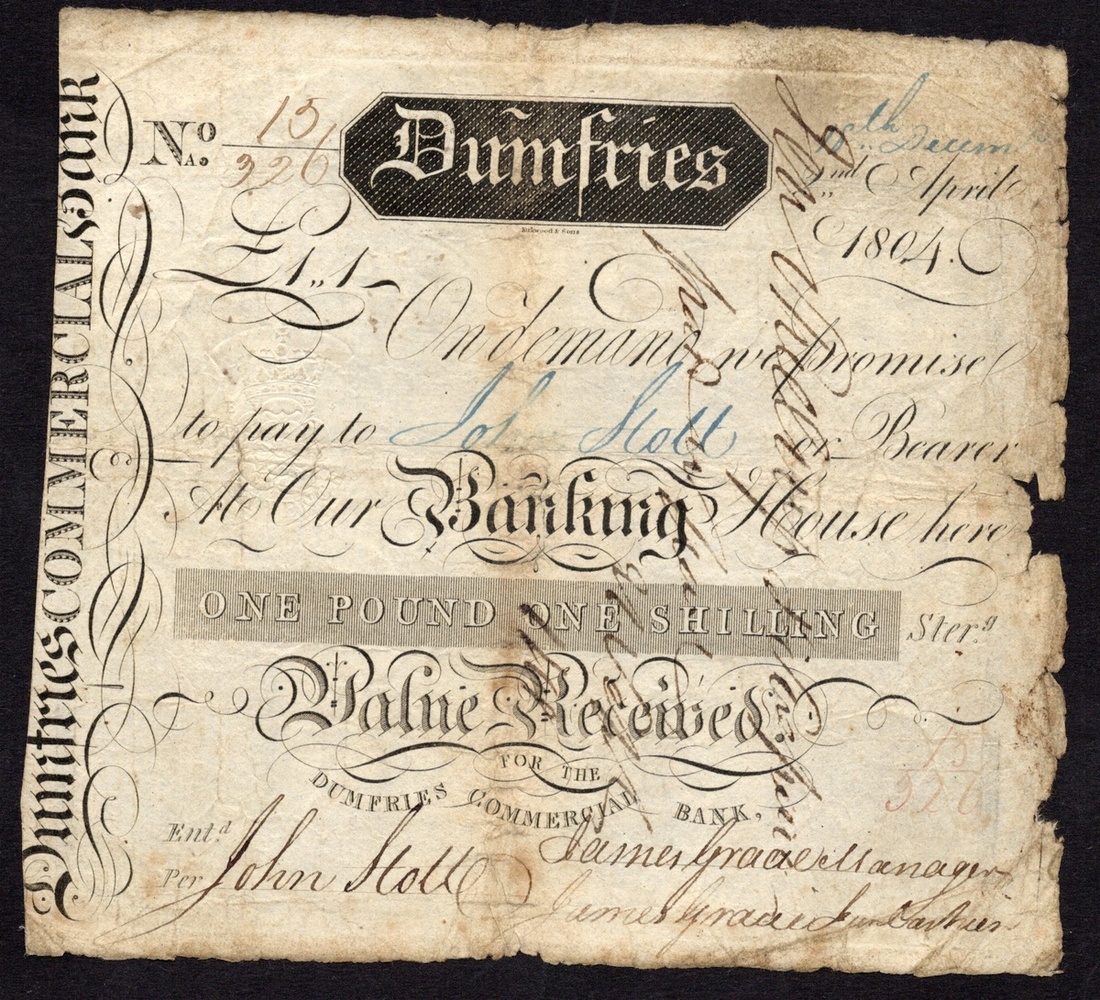 Dumfries COMMERCIAL Bank
No. 15
326
Dumfries
Kirkwood & Sons
10th Decem
2nd April
1804.
£1,,1
On demand we promise
to pay to John Stott or Bearer
At Our Banking House here
ONE POUND ONE SHILLING Ster.g
Value Received.
FOR THE
DUMFRIES COMMERCIAL BANK,
15
326
Ent.d
Per John Stott
James Gracie Manager
James Gracie Junr Cashier